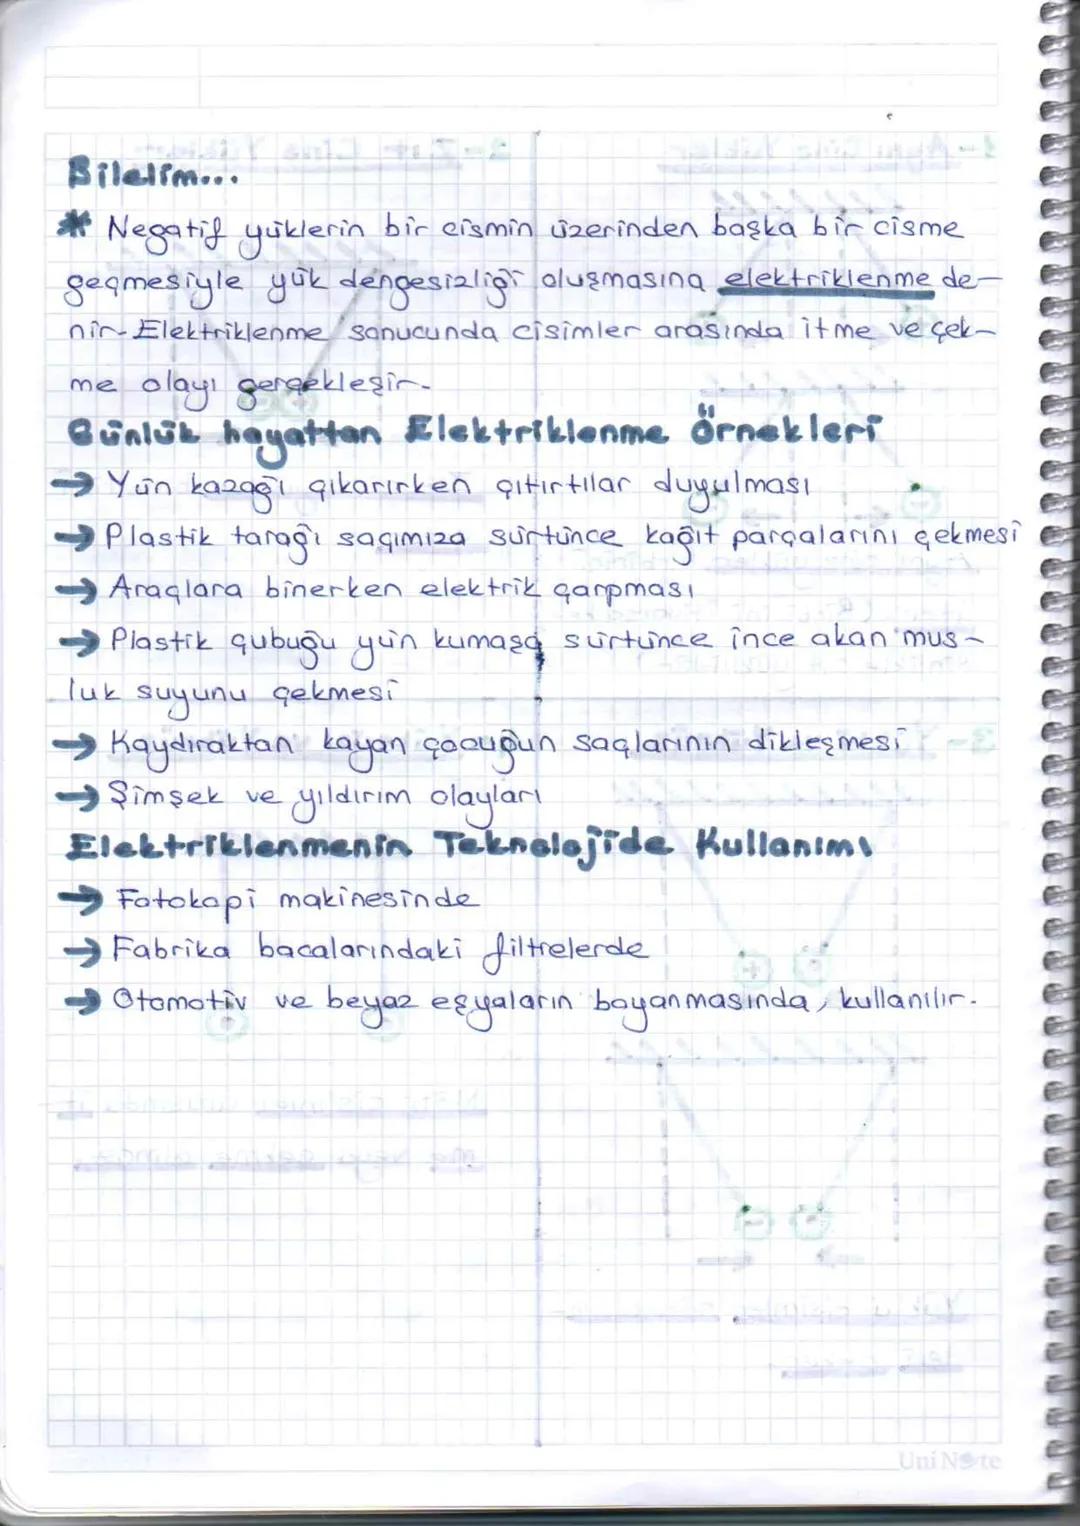 Bilelim...
* Negatif yüklerin bir cismin üzerinden başka bir cisme
geçmesiyle yük dengesizliği oluşmasına elektriklenme de-
nir. Elektriklenme sonucunda cisimler arasında itme ve çek-
me olayı gerçekleşir.
Günlük hayattan Elektriklenme Örnekleri
→ Yün kazağı çıkarırken çıtırtılar duyulması
→ Plastik tarağı saçımıza sürtünce kağıt parçalarını çekmesi
→ Araçlara binerken elektrik çarpması
→ Plastik çubuğu yün kumaşa sürtünce ince akan mus-
luk suyunu çekmesi
→ Kaydıraktan kayan çocuğun saçlarının dikleşmesi
→ Şimşek ve yıldırım olayları
Elektriklenmenin Teknolojide Kullanımı
→ Fotokopi makinesinde
→ Fabrika bacalarındaki filtrelerde
→ Otomotiv ve beyaz eşyaların boyanmasında, kullanılır.
UniNote